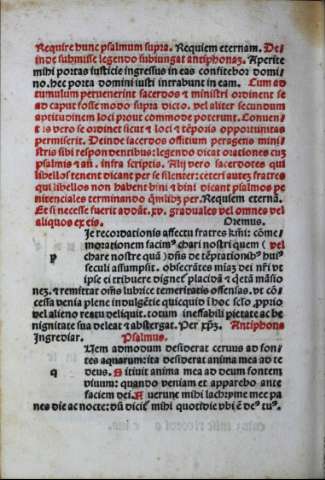 Require hunc psalmum supra. Requiem eternam. De-
inde submisse legendo subiungat antiphonaȝ. Aperite
mihi portas iusticie ingressus in eas confitebor domi-
no. hec porta domini iusti intrabunt in eam. Cum ad
tumulum peruenerint sacerdos ⁊ ministri ordinent se
ad caput fosse modo supra dicto. vel aliter secundum
aptitudinem loci prout commode poterunt. Conuen-
it is vero se ordinet sicut ⁊ loci ⁊ tēporis opportunitas
permiserit. Deinde sacerdos offitium peragens minis-
tris sibi respondentibus: legendo dicat orationes cuȝ
psalmis ⁊ añ. infra scriptis. Alij vero sacerdotes qui
libellos tenent dicant per se silenter: ceteri autez fratres
qui libellos non habent bini ⁊ bini dicant psalmos pe
nitenciales terminando quilibȝ per. Requiem eternā.
Et si necesse fuerit addāt. xv. graduales vel omnes vel
aliquos ex eis. Oremus.
p Je recordationis affectu fratres kr̄ni: cōme
morationem facim⁹ chari nostri quem (vel
chare nostre quā) dn̄s de tēptationib⁹ hui⁹
seculi assumpsit. obsecrātes miaȝ dei nr̄i vt
ipse ei tribuere dignet placidā ⁊ q̄etā māsio
neȝ. ⁊ remittat oīns lubrice temeritatis offensas. vt cō-
cessa venia plene indulgētie quicquid ī hoc sc̄lo ꝓprio
vel alieno reatu deliquit. totum ineffabili pietate ac be
nignitate sua deleat ⁊ abstergat. Per xp̄ȝ. Antiphona
Ingrediar. Psalmus.
q Uem admodum desiderat ceruus ad fon-
tes aquarum: ita desiderat anima mea ad te
deus. Sitiuit anima mea ad deum fontem
viuum: quando veniam et apparebo ante
faciem dei. Fuerunt mihi lachryme mee pa
nes die ac nocte: dū dicit⁹ mihi quotidie vbi ē de⁹ tu⁹.